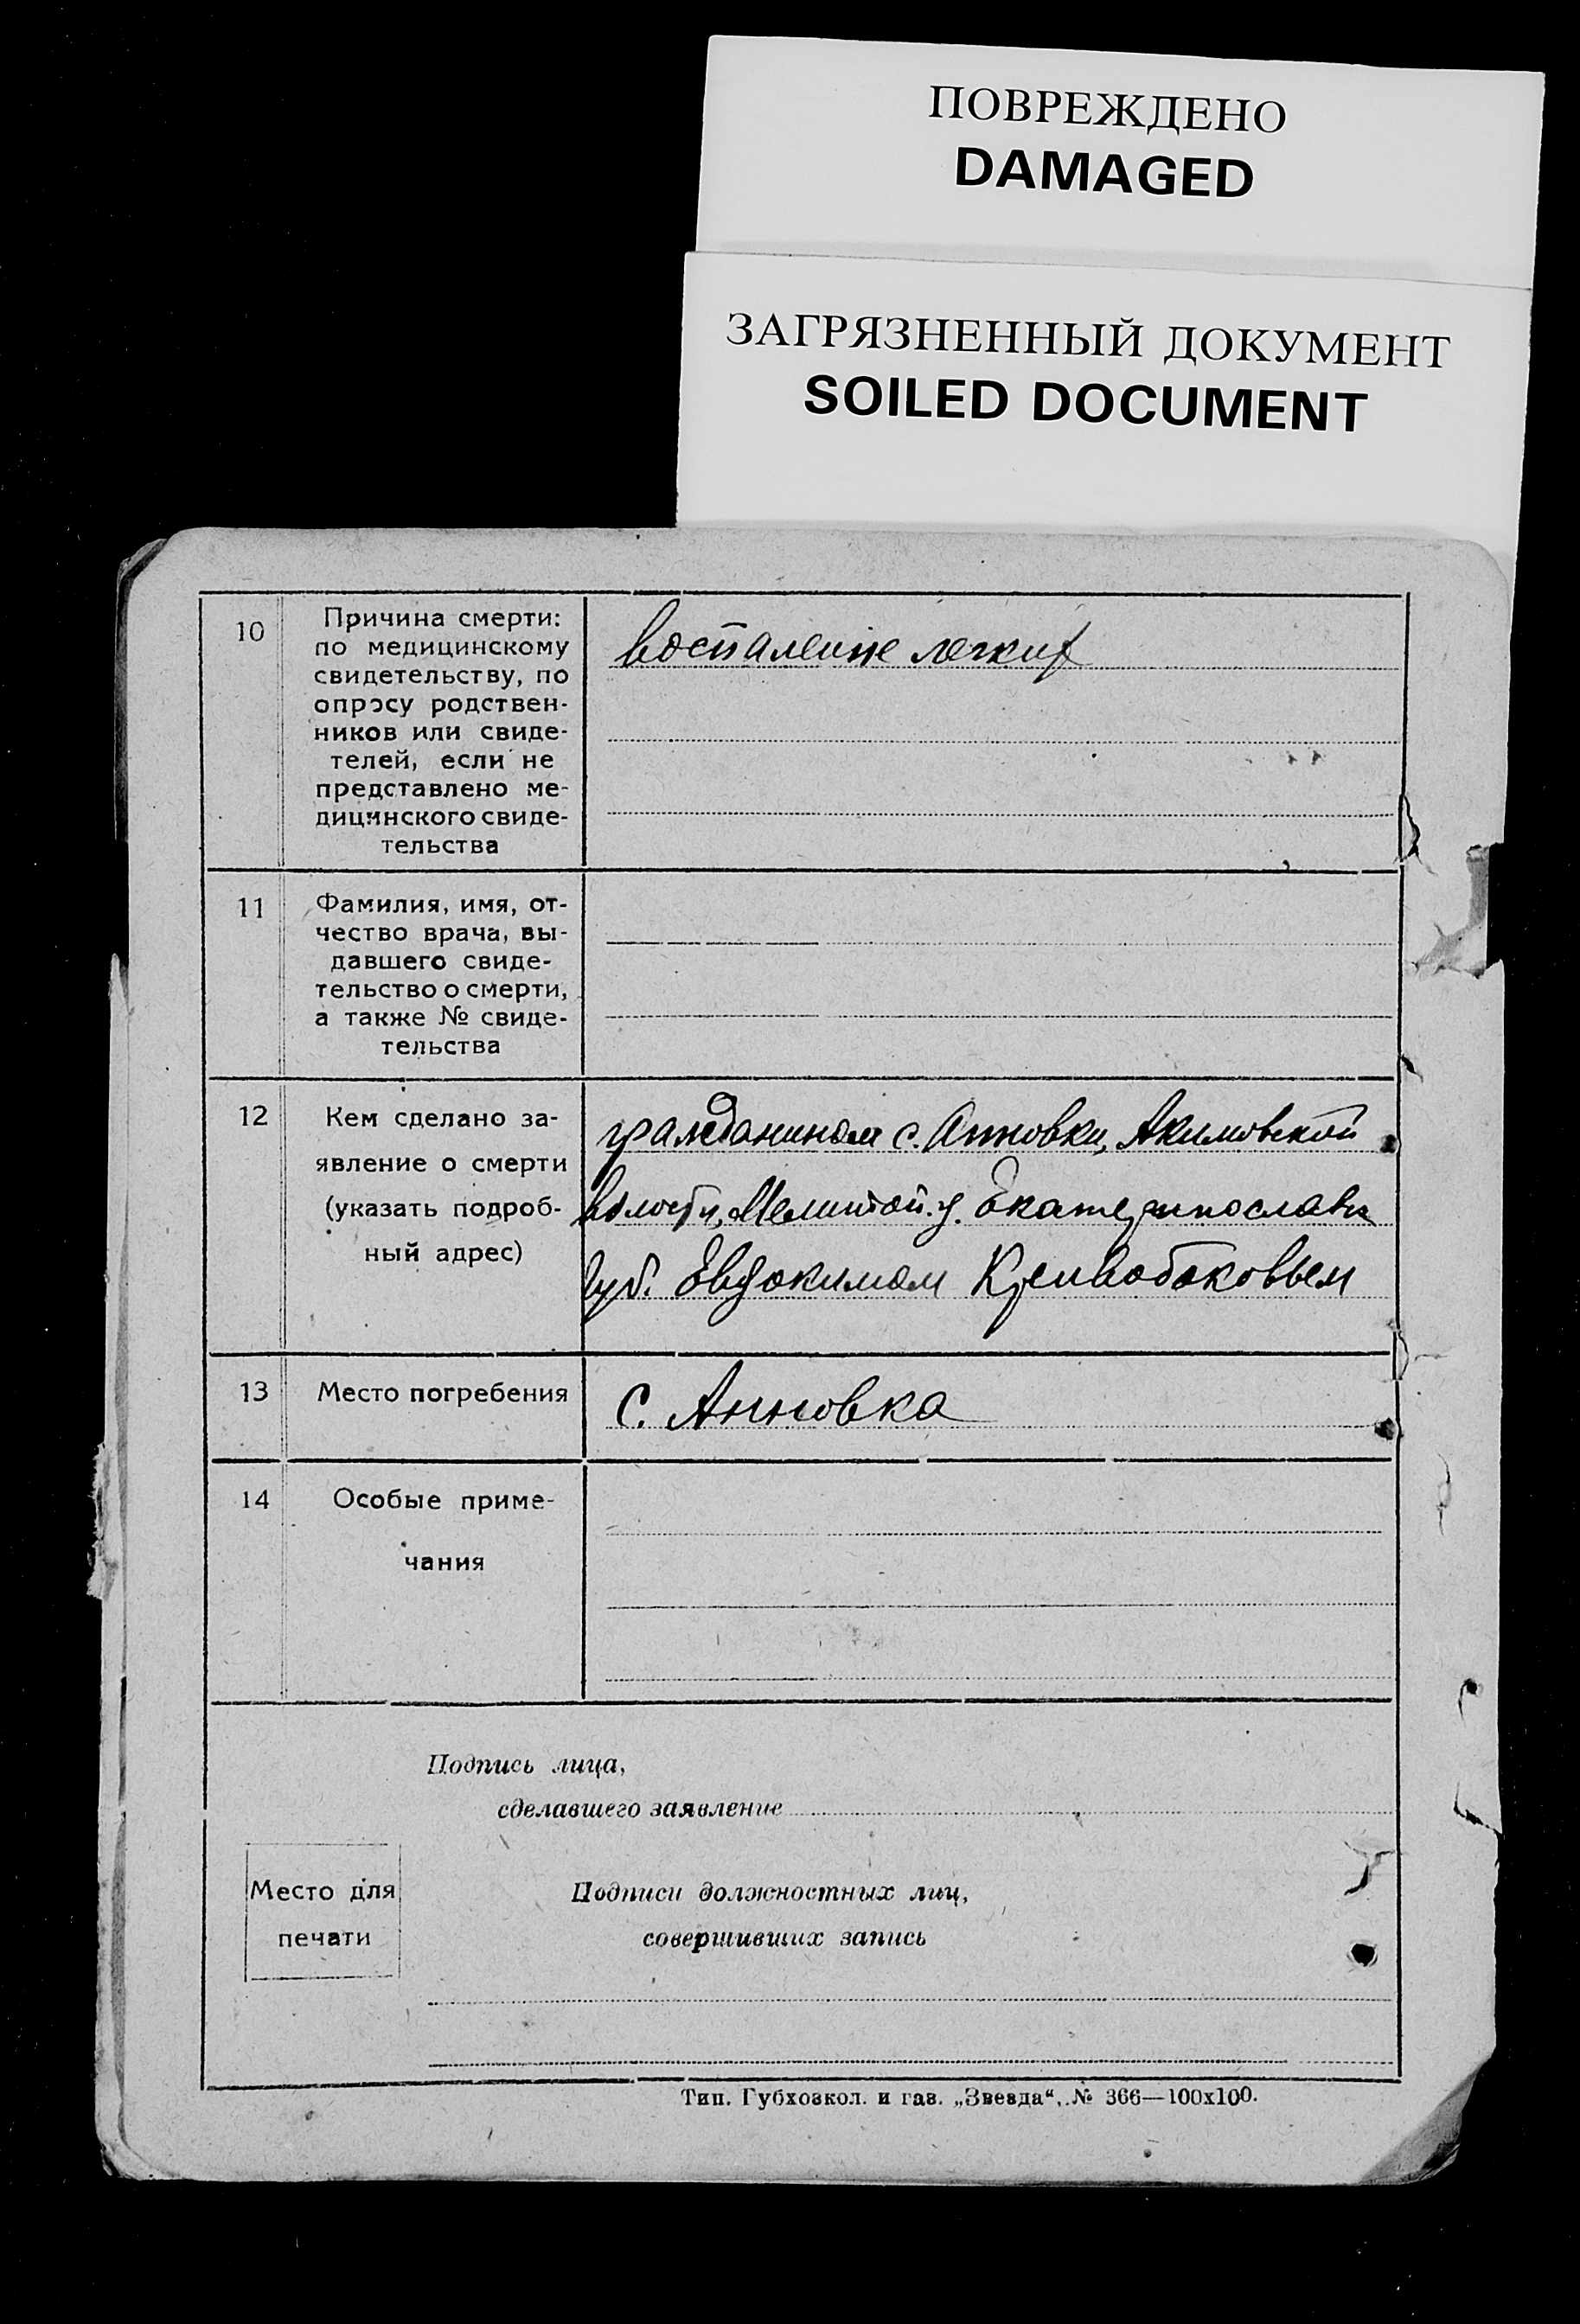 ПОВРЕЖДЕНО
DAMAGED
ЗАГРЯЗНЕННЫЙ ДОКУМЕНТ
SOILED DOCUMENT
10
Причина смерти:
по медицинскому
свидетельству, по
опросу родствен-
ников или свиде-
телей, если не
представлено ме-
дицинского свиде-
тельства
воспаление легких
11
Фамилия, имя, от-
чество врача, вы-
давшего свиде-
тельство о смерти,
а также № свиде-
тельства
12
Кем сделано за-
явление о смерти
(указать подроб-
ный адрес)
гражданином с. Анновки, Акимовской
волости, Мелитоп. у. Екатеринославск
губ. Евдокимом Кривобоковым
13
Место погребения
с. Анновка
14
Особые приме-
чания
Подпись лица,
сделавшего заявление
Место для
печати
Подписи должностных лиц,
совершивших запись
Тип. Губхозкол. и газ. „Звезда“, № 366—100х100.